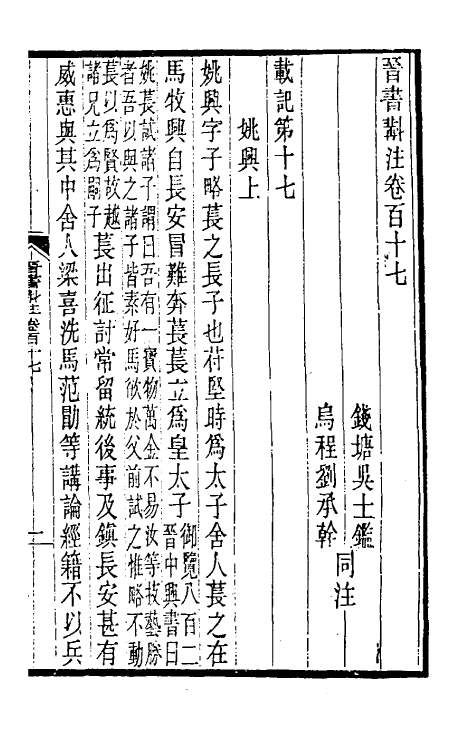 晉書斠注卷百十七
錢塘吳士鑑
烏程劉承幹
同注
載記第十七
姚興上
姚興字子略萇之長子也苻堅時爲太子舍人萇之在
馬牧興自長安冒難奔萇萇立爲皇太子
御覽八百二
晉中興書曰
姚萇試諸子謂曰吾有一寶物萬金不易汝等技藝勝
者吾以與之諸子皆素好馬欲於父前試之惟略不動
萇以爲賢故越
諸兄立爲嗣子
萇出征討常留統後事及鎮長安甚有
威惠與其中舍人梁喜洗馬范勖等講論經籍不以兵
晉書斠注卷百十七
一